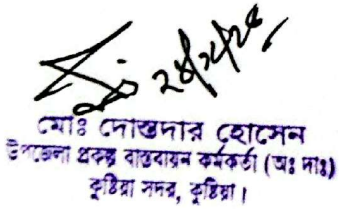 মোঃ দোস্তদার হোসেন
উপজেলা প্রকল্প বাস্তবায়ন কর্মকর্তা (অঃ দাঃ)
কুষ্টিয়া সদর, কুষ্টিয়া।